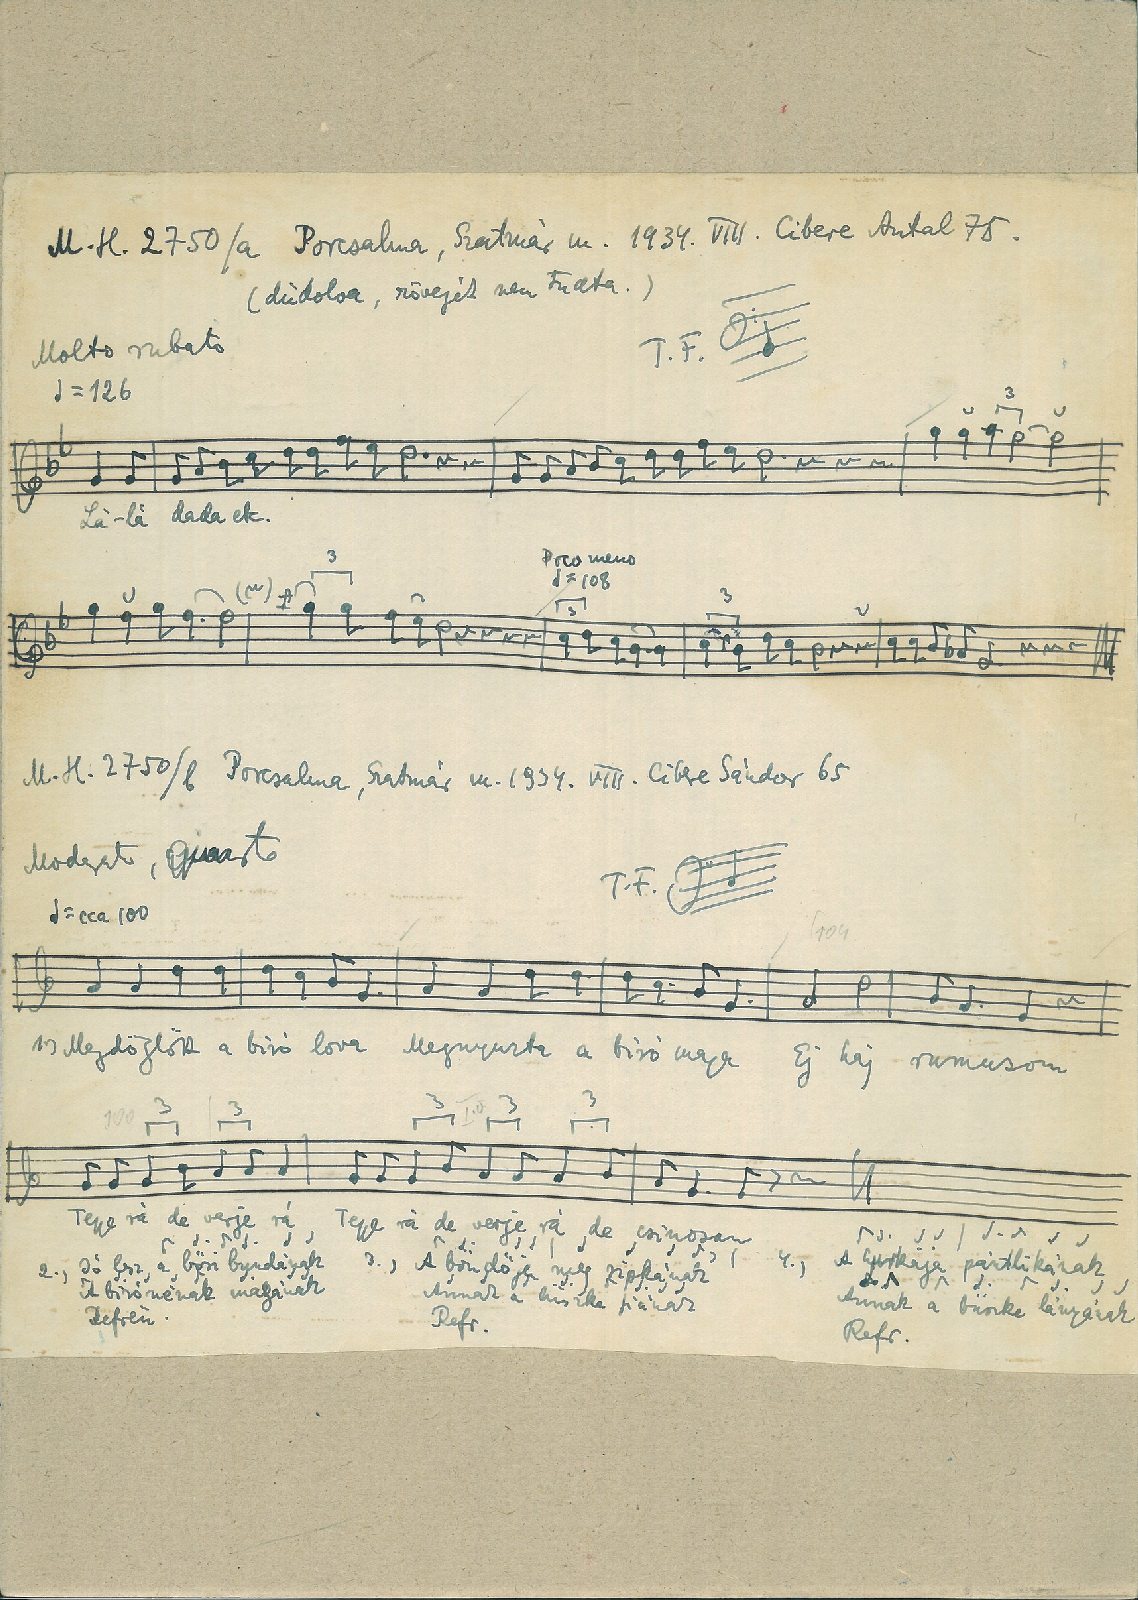 M.H. 2750/a Porcsalma, Szatmár m. 1934. VIII. Cibere Antal 75.
(dúdolva, szövegét nem tudta.)
Molto rubato
T. F.
♩=126
3
Lá-lá dada etc.
3
Poco meno
♩=108
3
3
M.H. 2750/b Porcsalma, Szatmár m. 1934. VIII. Cibere Sándor 65
Moderato, giusto
T.F.
♩=cca 100
104
1.) Megdöglött a biró lova Megnyuzta a biró maga Ej haj rumuson
100 3 3 3 3 3
Teppe rá de verje rá, Teppe rá de verje rá de csinosan
2., Jó lesz a bőri bundának
A birónénak magának
Refrén.
3., A böndője meg zipkának
Annak a büszke fiának
Refr.
4., A gurkája pántlikának
Annak a büszke lányának
Refr.